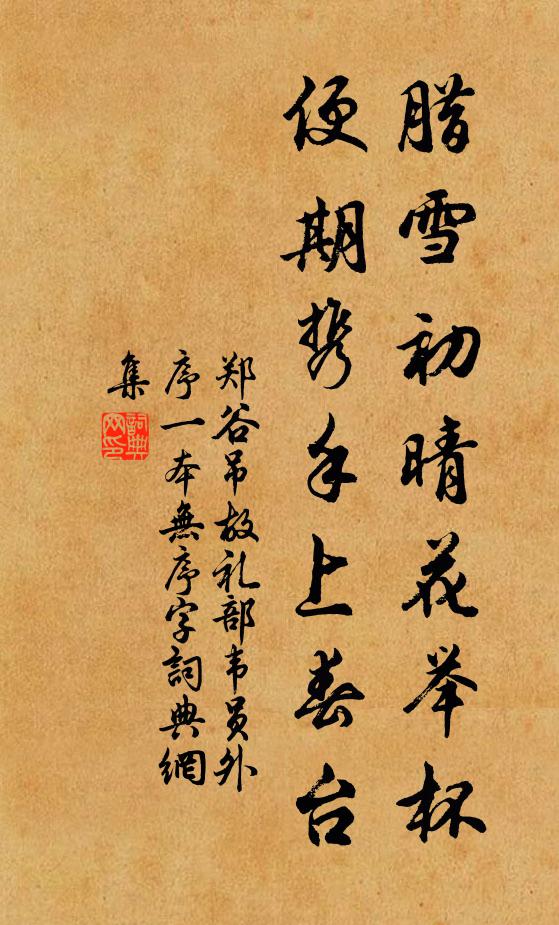 腊雪初晴花举杯
便期携手上春台
郑谷吊故礼部韦员外
序一本無序字詞典網
集
詞典网印